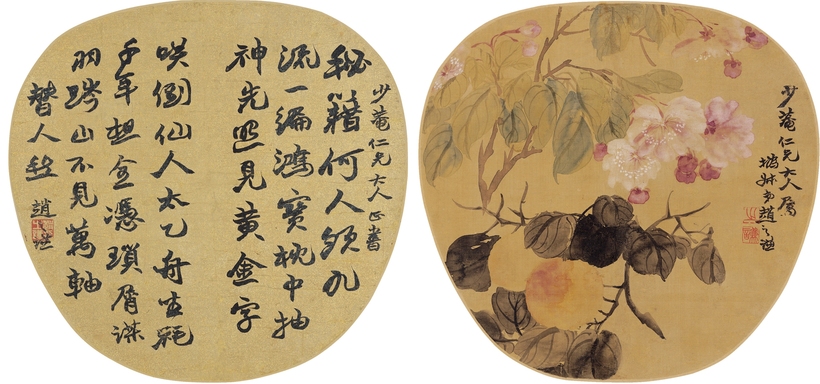 少菴仁兄大人正書
秘籍何人領九
流一編鴻寶枕中抽
神光照見黃金字
咲倒仙人太乙舟坐耗
千年想全憑瑣屑謀
羽陵山不見萬軸
替人愁
趙之謙
少菴仁兄大人屬
撝叔弟趙之謙